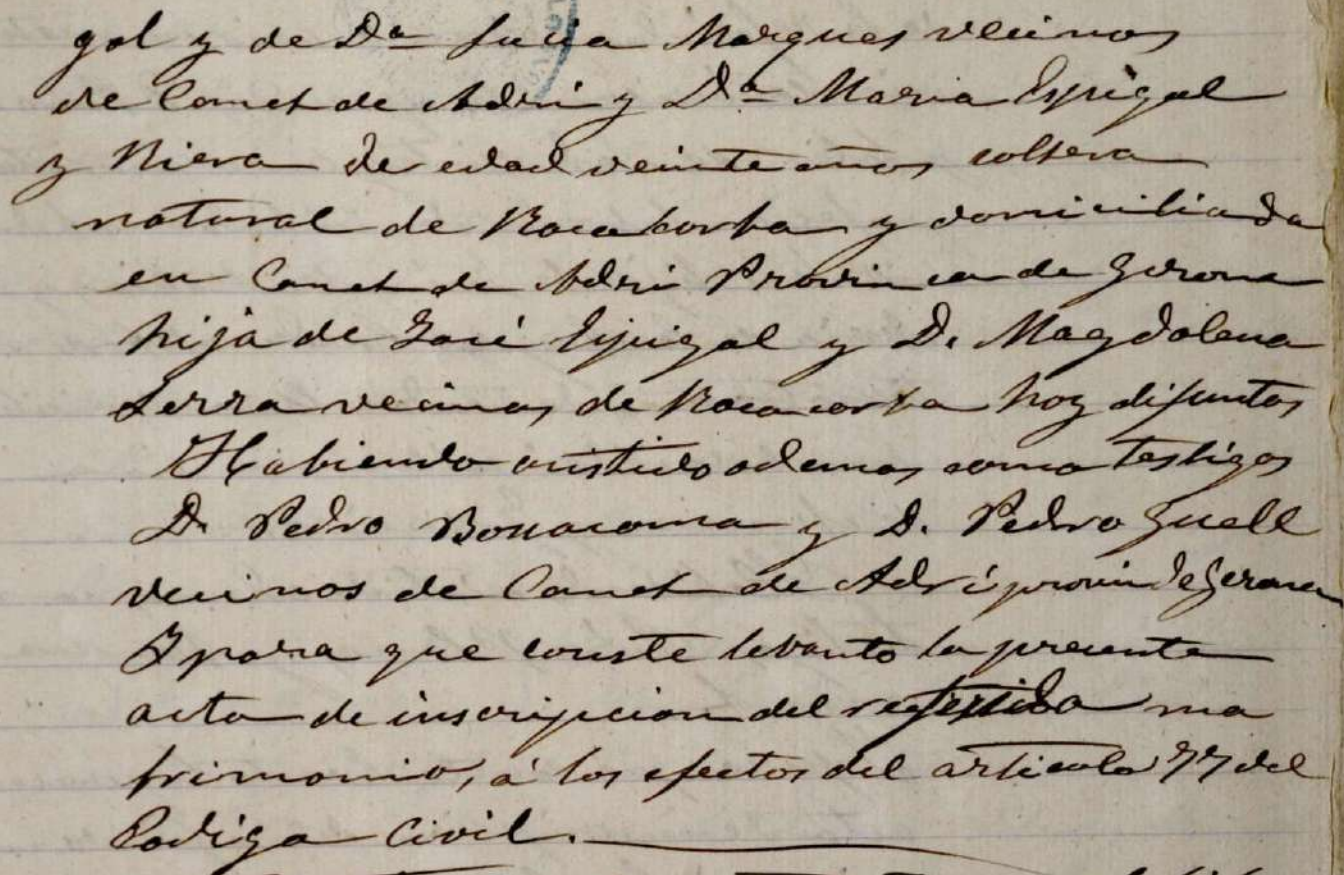 gol y de Dª Lucia Marques vecinos
de Canet de Adri y Dª Maria Espigol
y Riera de edad veinte años soltera
natural de Rocacorba y domiciliada
en Canet de Adri Provincia de Gerona
hija de José Espigol y D. Magdalena
Serra vecinos de Rocacorba hoy difuntos
Habiendo asistido ademas como testigos
D. Pedro Bonacoma y D. Pedro Guell
vecinos de Canet de Adri provin de Gerona
Y para que conste levanto la presente
acta de inscripcion del referido ma
trimonio, á los efectos del articulo 77 del
Codigo Civil.